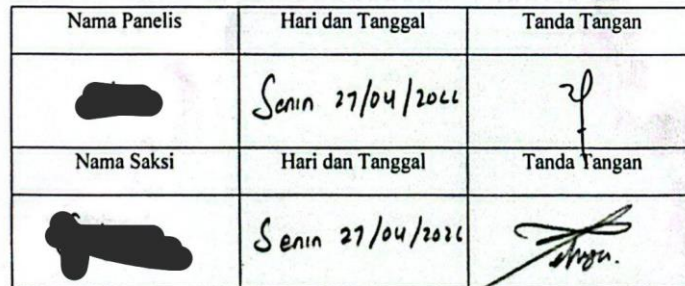 Nama Panelis Hari dan Tanggal Tanda Tangan
Senin 27/04/2026
Nama Saksi Hari dan Tanggal Tanda Tangan
Senin 27/04/2026